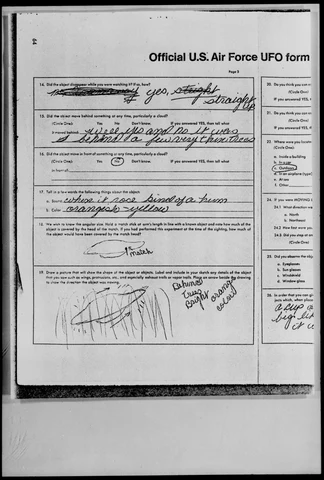 64
Official U.S. Air Force UFO form
Page 3
14. Did the object disappear while you were watching it? If so, how?
yes, straight
straight
up
15. Did the object move behind something at any time, particularly a cloud?
(Circle One): Yes No Don't Know. If you answered YES, then tell what
it moved behind: well yes and no it was
behind a few very thin trees
16. Did the object move in front of something at any time, particularly a cloud?
(Circle One): Yes No Don't Know. If you answered YES, then tell what
in front of:
17. Tell in a few words the following things about the object:
a. Sound when it rose kind of a hum
b. Color orangish-yellow
18. We wish to know the angular size. Hold a match stick at arm's length in line with a known object and note how much of the
object is covered by the head of the match. If you had performed this experiment at the time of the sighting, how much of
the object would have been covered by the match head?
match
19. Draw a picture that will show the shape of the object or objects. Label and include in your sketch any details of the object
that you saw such as wings, protrusions, etc., and especially exhaust trails or vapor trails. Place an arrow beside the drawing
to show the direction the object was moving.
Behind
Trees
Bright orange
color
20. Do you think you can
(Circle One)
If you answered YES,
21. Do you think you can
(Circle One)
If you answered YES,
22. Where were you locat
(Circle One):
a. Inside a building
b. In a car
c. Outdoors
d. In an airplane (type)
e. At sea
f. Other
24. If you were MOVING
24.1 What direction
a. North
b. Northeast
24.2 How fast were you
24.3 Did you stop at any
(Circle One)
25. Did you observe the obj
a. Eyeglasses
b. Sun glasses
c. Windshield
d. Window glass
26. In order that you can gi
a cup
big li
it u